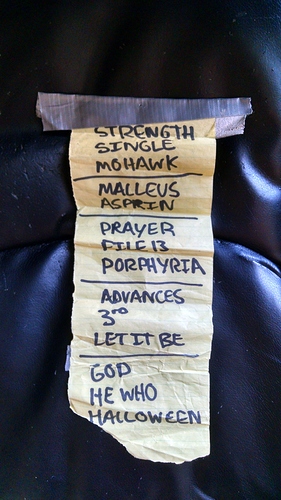 STRENGTH
SINGLE
MOHAWK
MALLEUS
ASPRIN
PRAYER
FILE 13
PORPHYRIA
ADVANCES
3RD
LET IT BE
GOD
HE WHO
HALLOWEEN